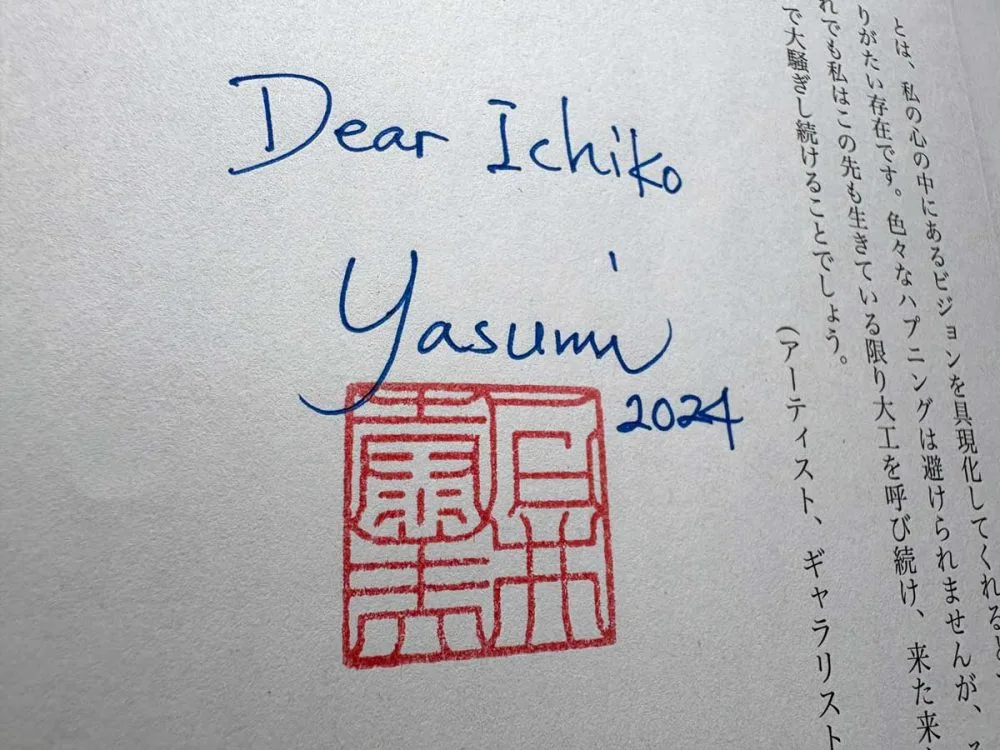 Dear Ichiko
Yasumi
2024
とは、私の心の中にあるビジョンを具現化してくれると、
りがたい存在です。色々なハプニングは避けられませんが、
れでも私はこの先も生きている限り大工を呼び続け、来た来
で大騒ぎし続けることでしょう。
(アーティスト、ギャラリスト